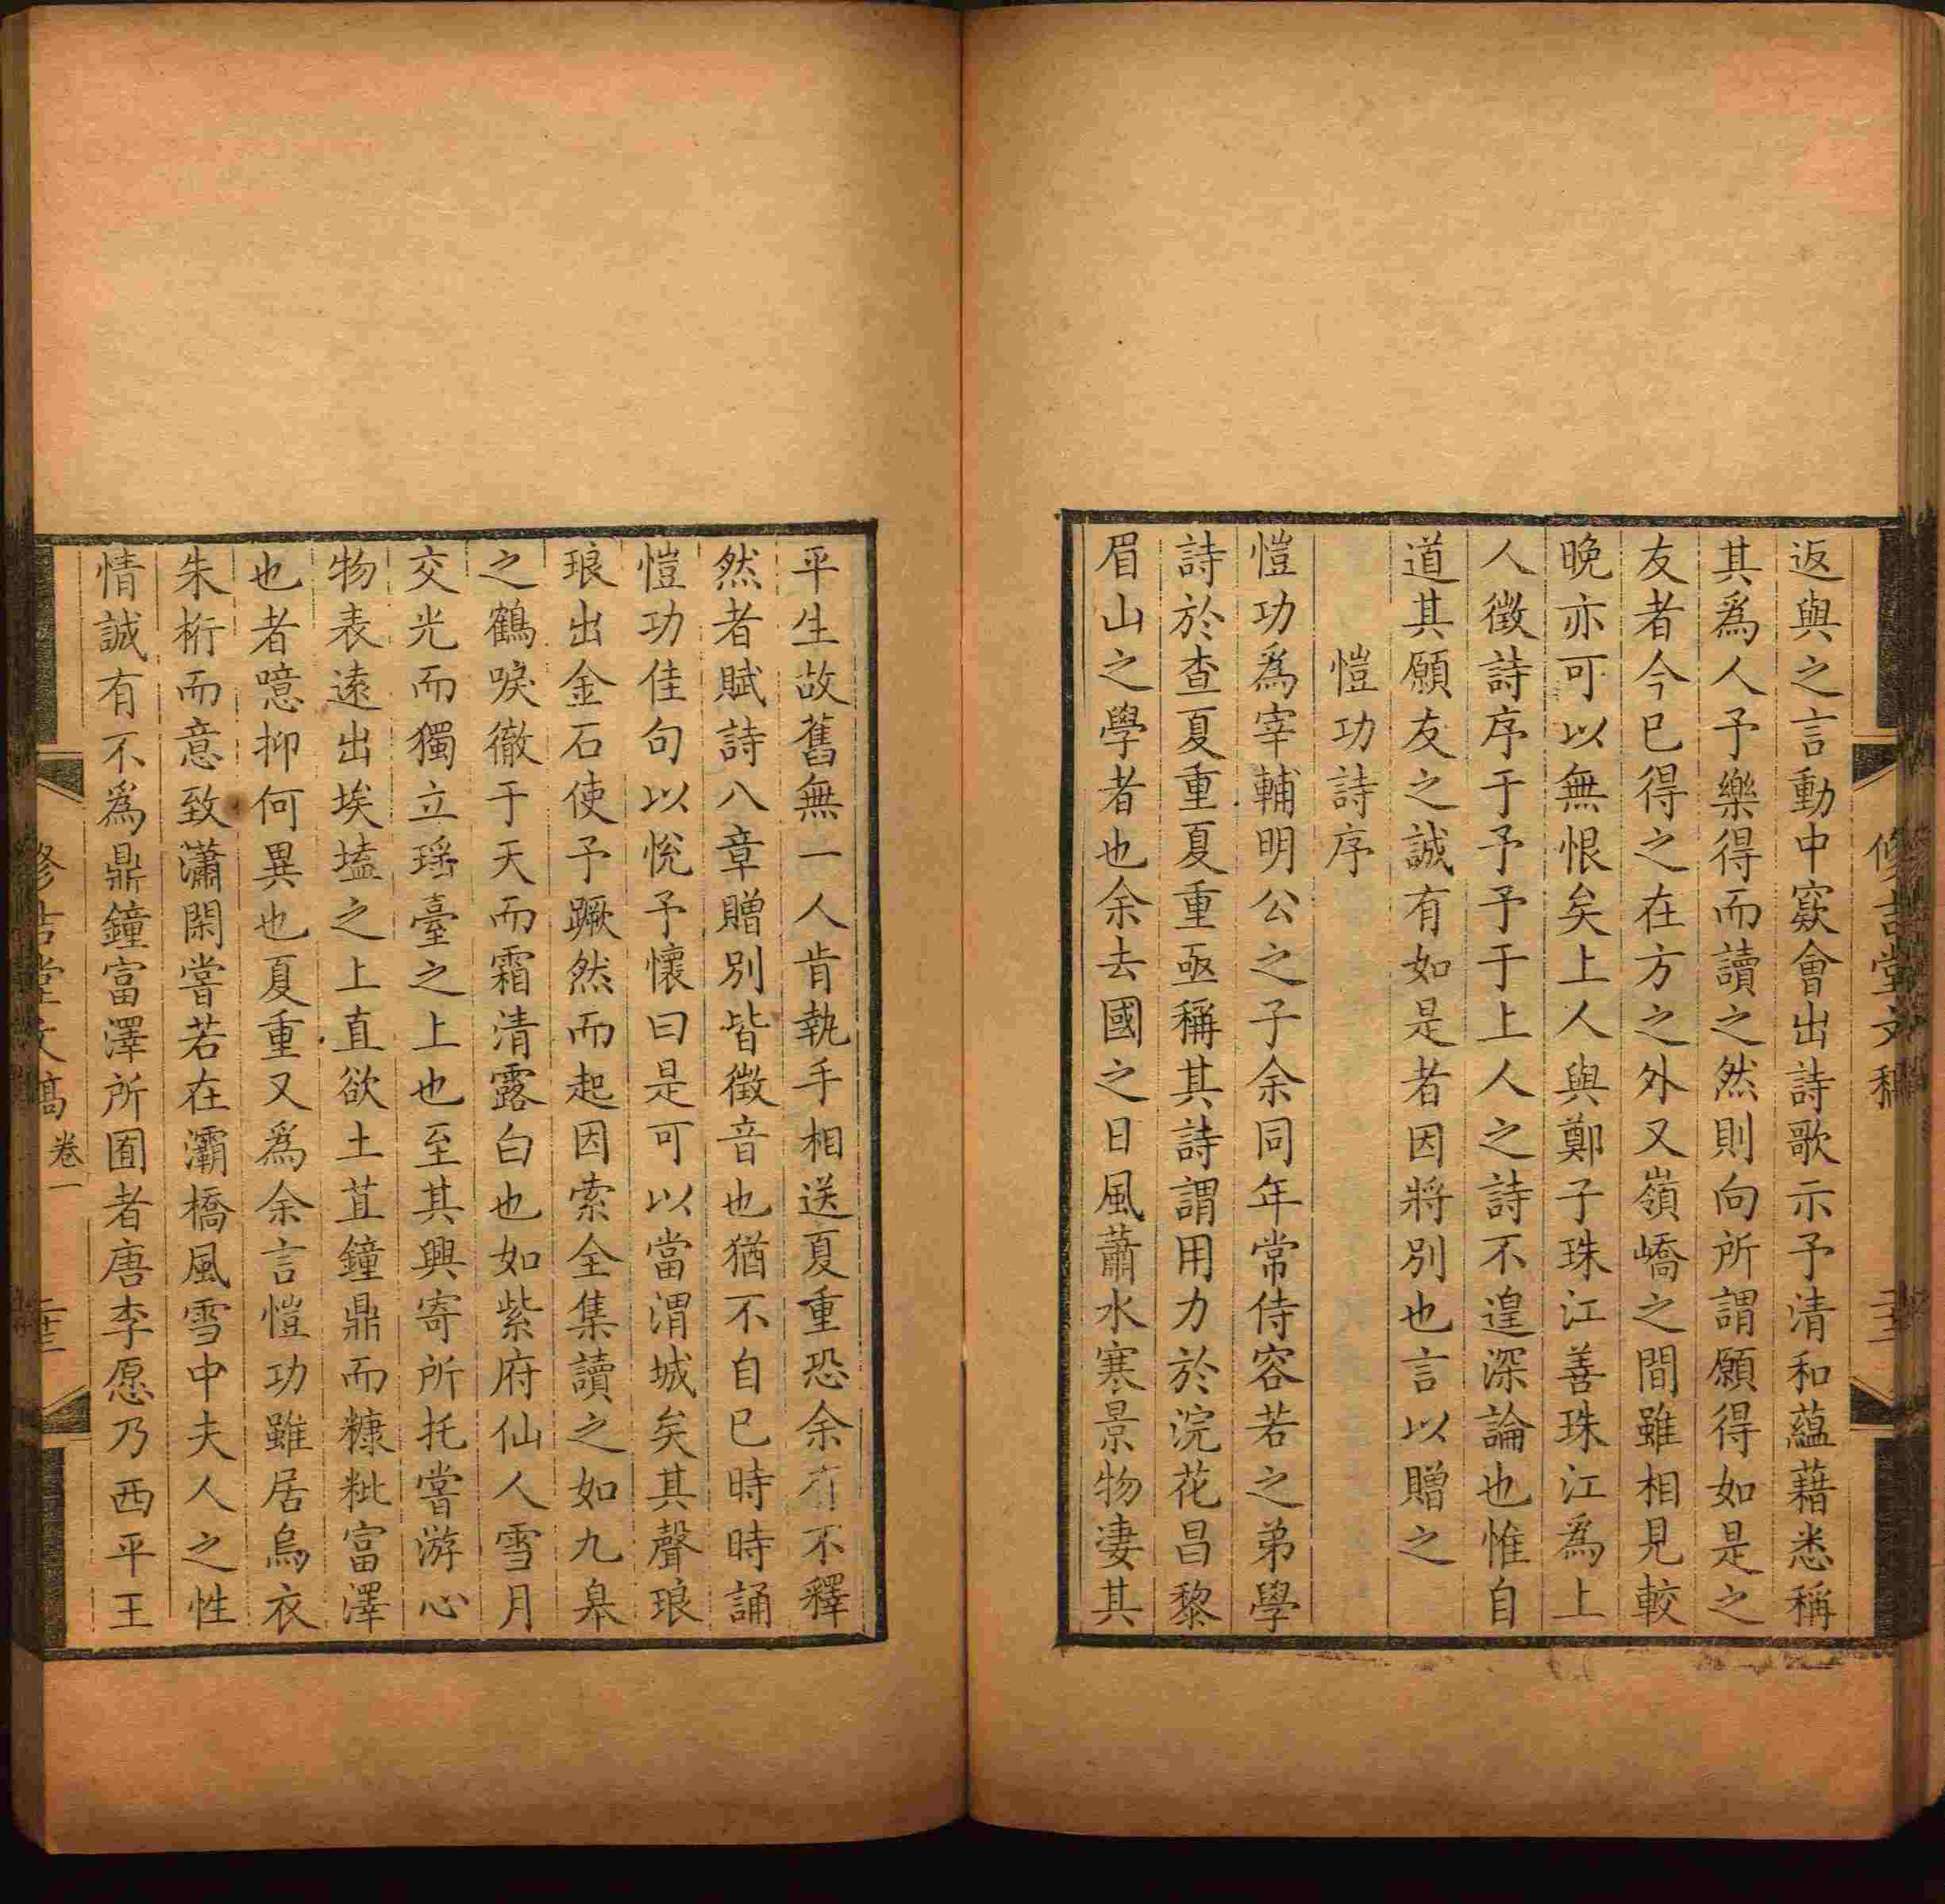 返與之言動中窾會出詩歌示予清和蘊藉悉稱
其爲人予樂得而讀之然則向所謂願得如是之
友者今已得之在方之外又嶺嶠之間雖相見較
晚亦可以無恨矣上人與鄭子珠江善珠江爲上
人徵詩序于予予于上人之詩不遑深論也惟自
道其願友之誠有如是者因將別也言以贈之
愷功詩序
愷功爲宰輔明公之子余同年常侍容若之弟學
詩於查夏重夏重亟稱其詩謂用力於浣花昌黎
眉山之學者也余去國之日風蕭水寒景物淒其
平生故舊無一人肯執手相送夏重恐余不釋
然者賦詩八章贈別皆徵音也猶不自已時時誦
愷功佳句以悅予懷曰是可以當渭城矣其聲琅
琅出金石使予蹶然而起因索全集讀之如九皋
之鶴唳徹于天而霜清露白也如紫府仙人雪月
交光而獨立瑤臺之上也至其興寄所托嘗游心
物表遠出埃壒之上直欲土苴鐘鼎而糠粃富澤
也者噫抑何異也夏重又爲余言愷功雖居烏衣
朱桁而意致瀟閑嘗若在灞橋風雪中夫人之性
情誠有不爲鼎鐘富澤所囿者唐李愿乃西平王
修吉堂文稿 卷一